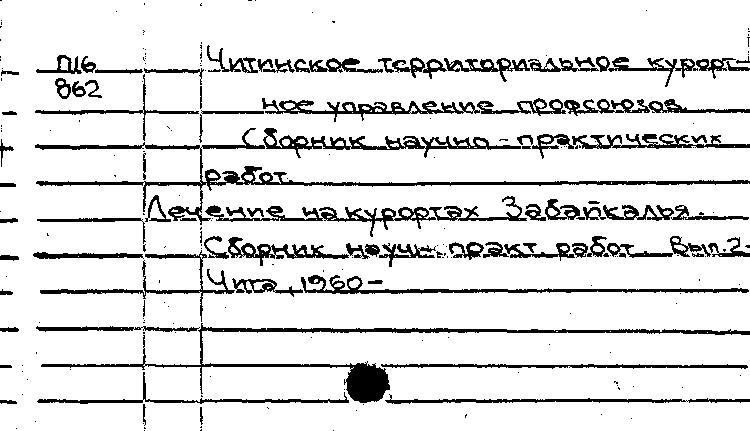 П16 Читинское территориальное курорт-
862 ное управление профсоюзов.
Сборник научно-практических
работ.
Лечение на курортах Забайкалья.
Сборник научн. практ. работ. Вып.2-
Чита, 1960-